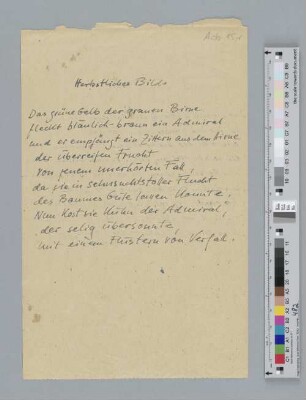 Herbstliches Bild
Das grüne Gelb der grauen Birne
fleckt bläulich-braun ein Admiral
und er empfängt ein Zittern aus dem Hirne
der überreifen Frucht
von jenem unerhörten Fal,
da sie in sehnsuchtstoller Flucht
des Baumes Güte
Nun löst sie kühn der Admiral,
der selig übersonnte,
mit einem Flüstern von Verfal.